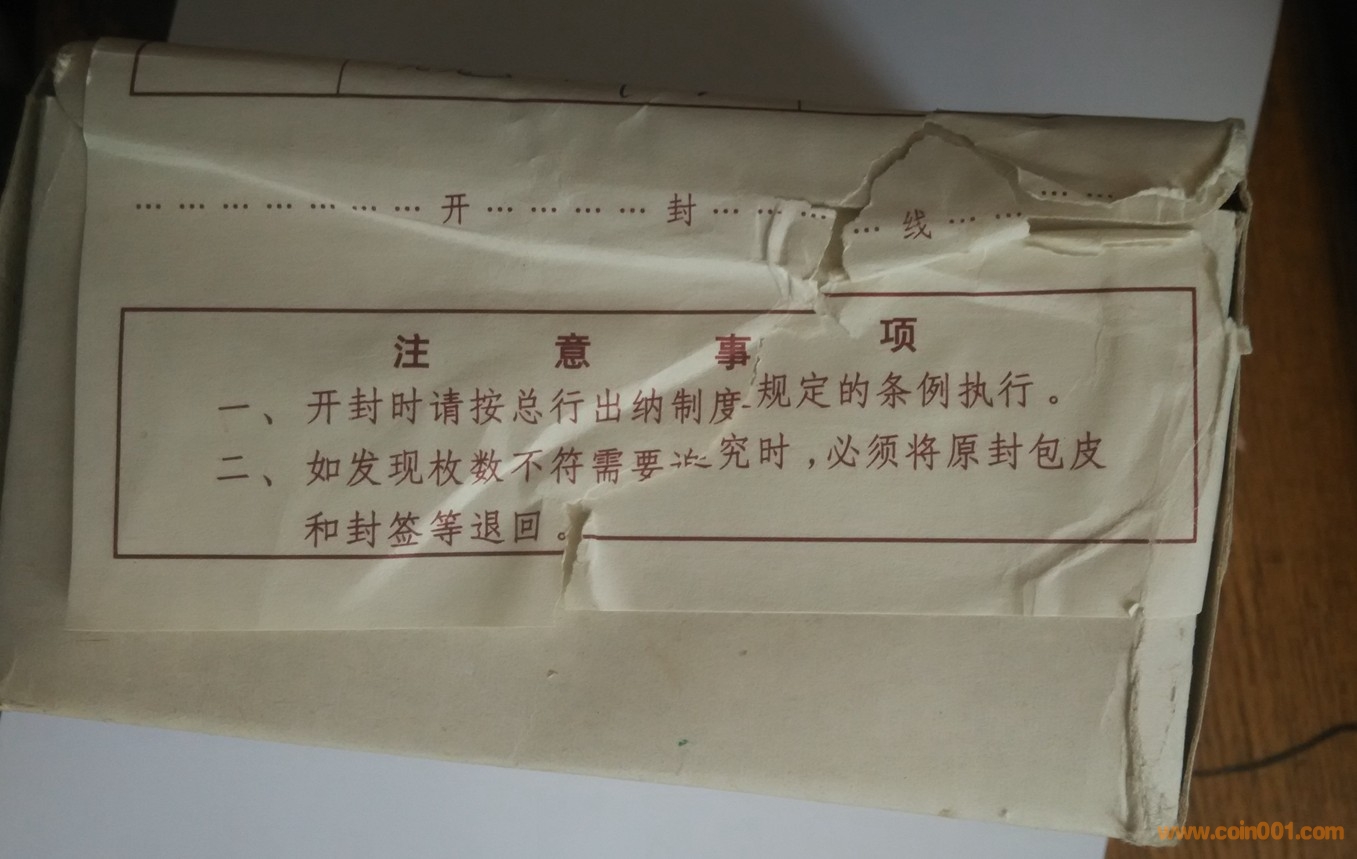 … … … … … … … 开 … … … … 封 … … … … 线 … … … …
注意事项
一、开封时请按总行出纳制度规定的条例执行。
二、如发现枚数不符需要 究时,必须将原封包皮
和封签等退回。
www.coin001.com